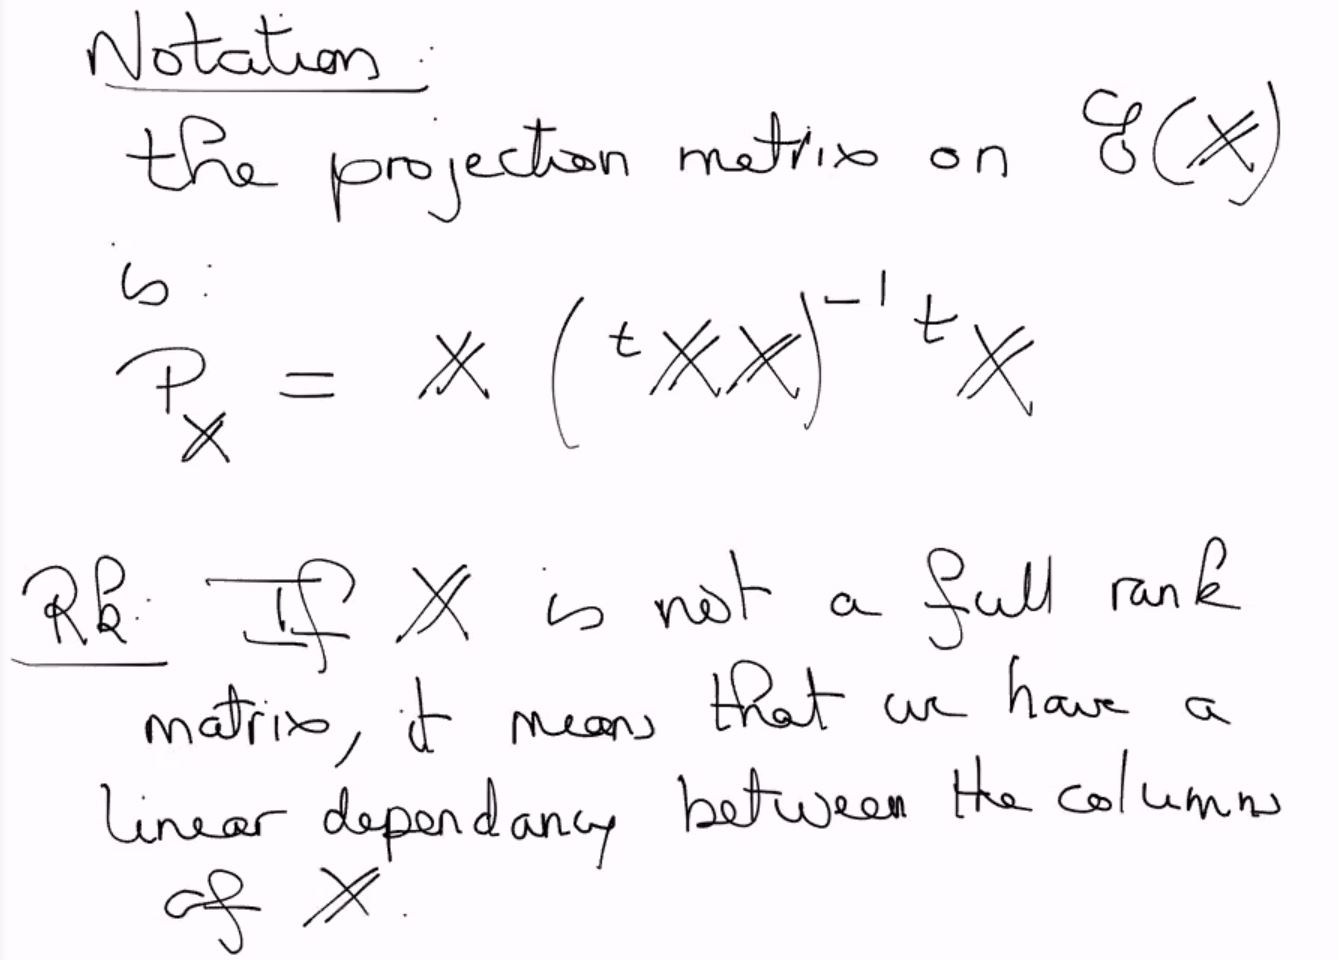 Notation:
the projection matrix on 𝒞(𝕏)
is:
P_𝕏 = 𝕏 (ᵗ𝕏𝕏)⁻¹ ᵗ𝕏
Rk: If 𝕏 is not a full rank
matrix, it means that we have a
linear dependancy between the columns
of 𝕏.